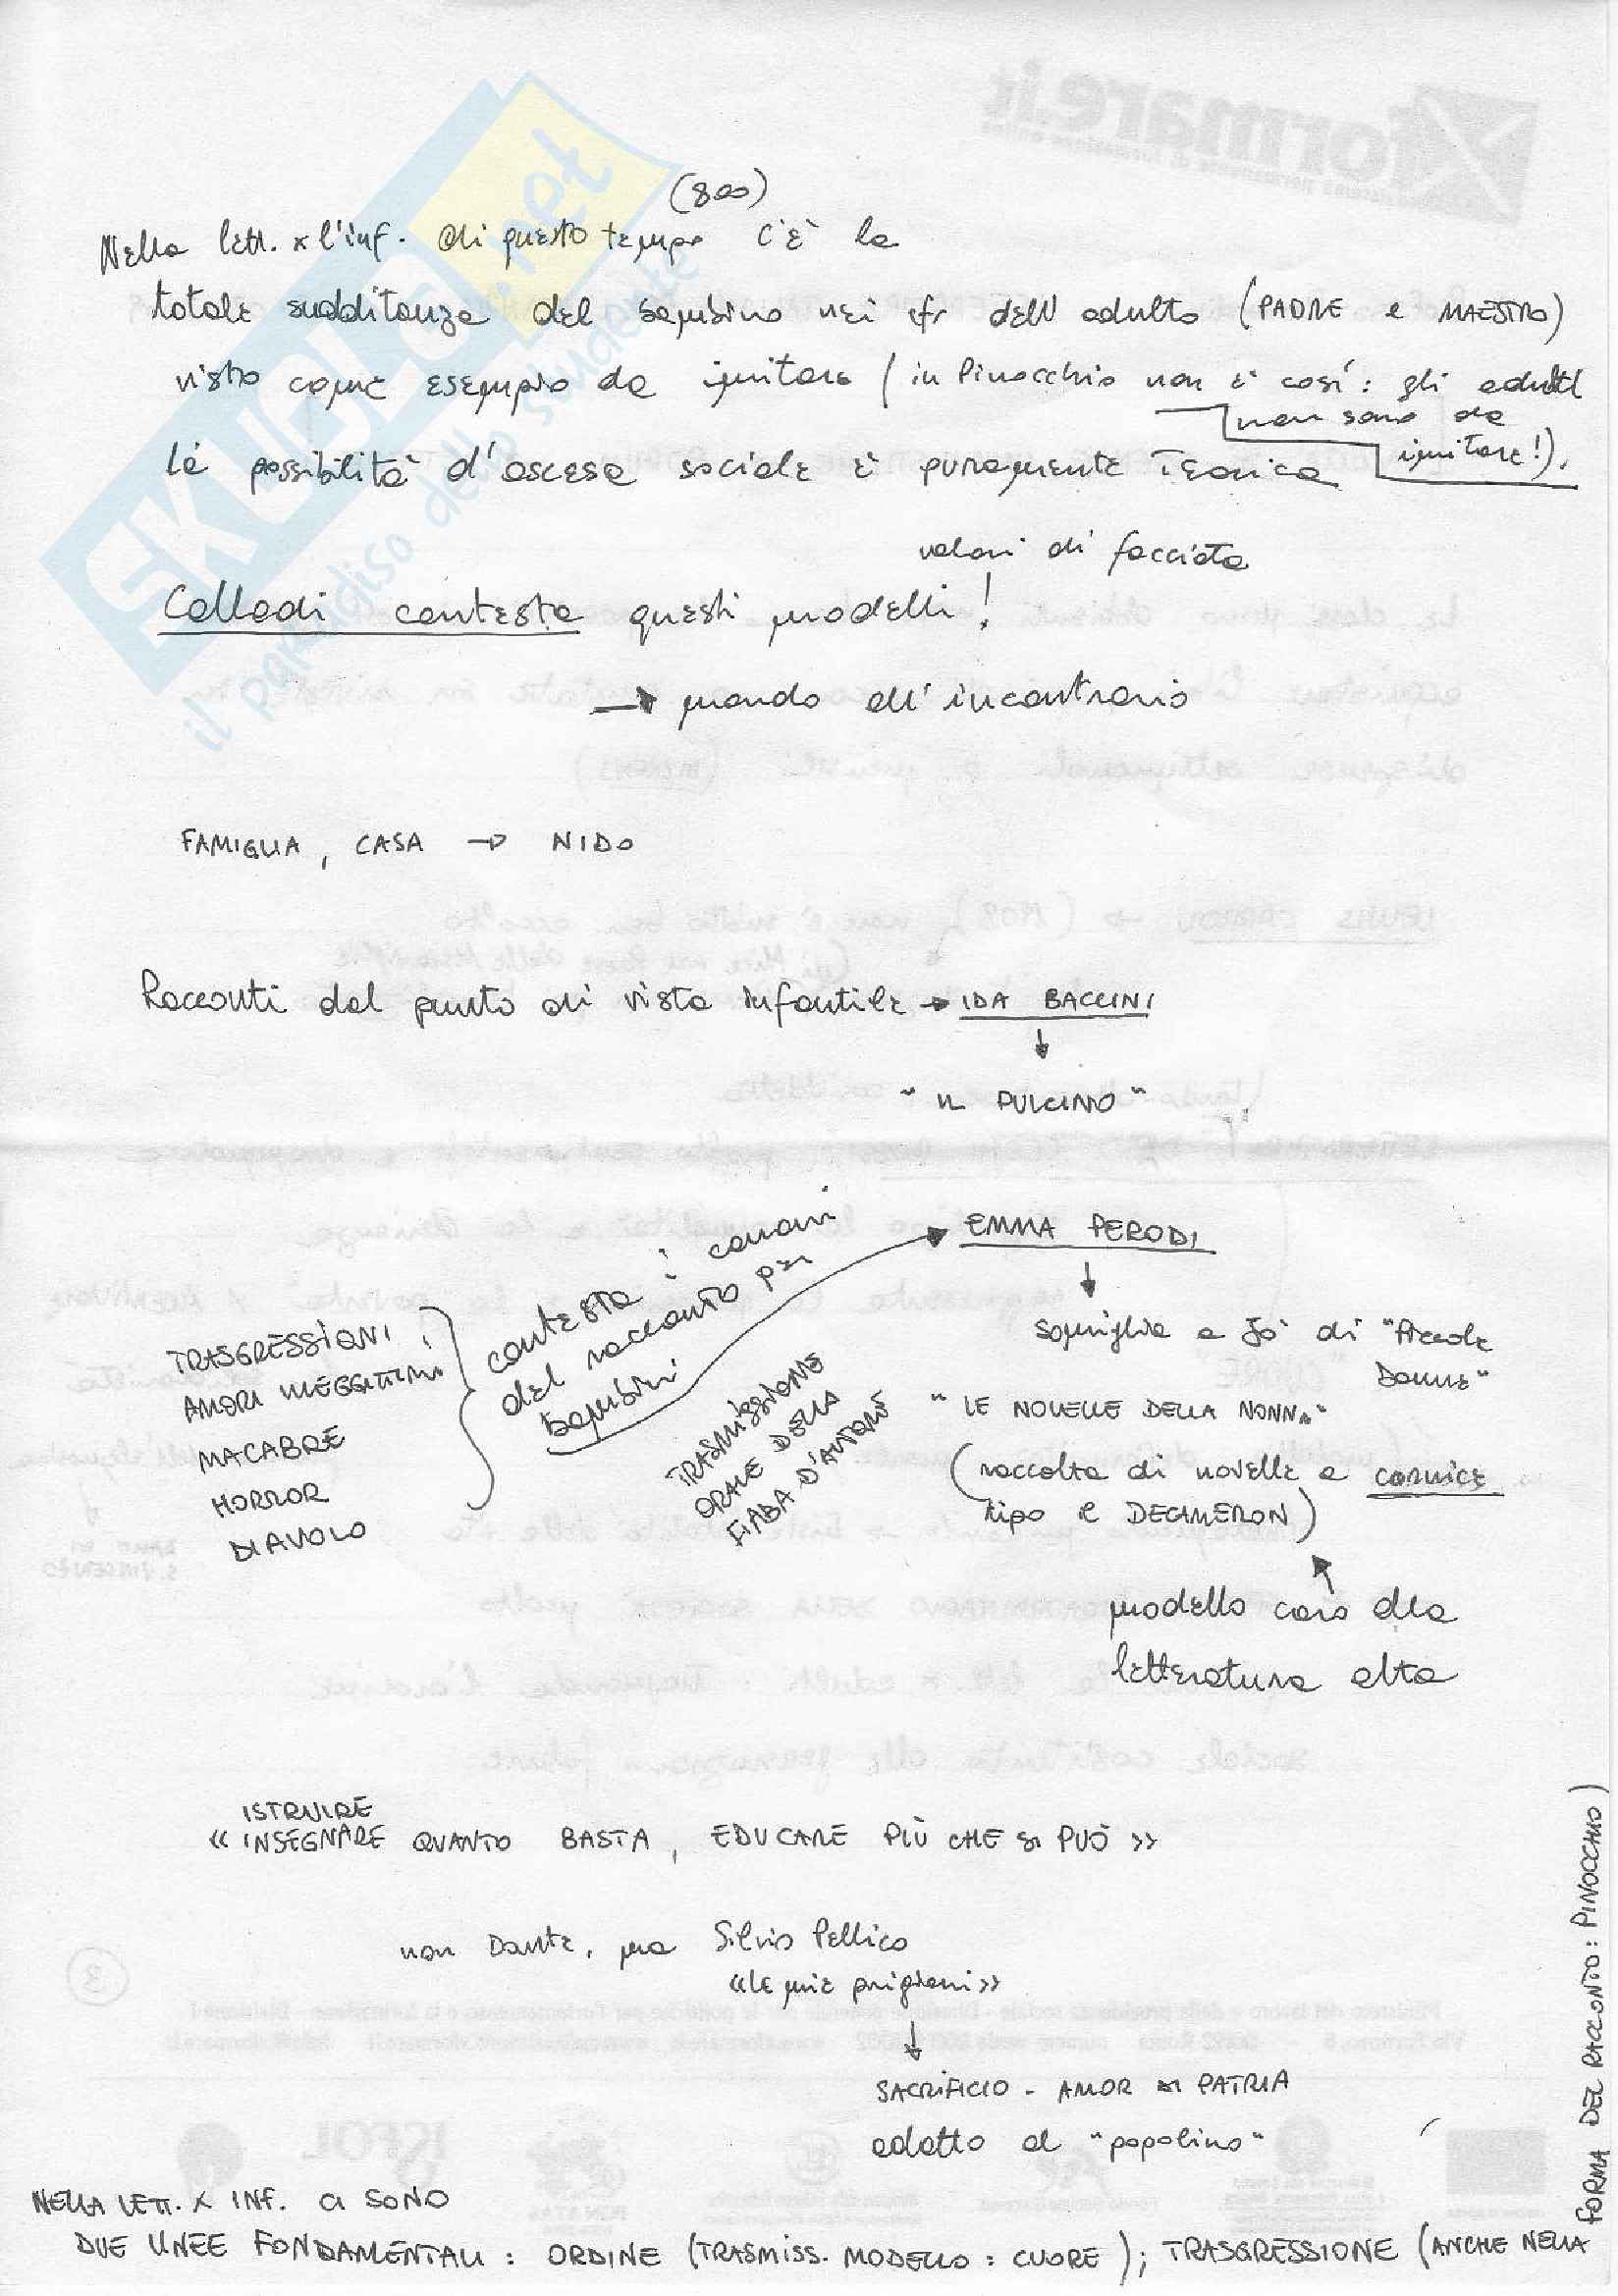 (800)
Nella lett. x l'inf. di questo tempo c'è la
totale sudditanza del bambino nei cfr dell'adulto (PADRE e MAESTRO)
visto come esempio da imitare (in Pinocchio non è così: gli adulti
non sono da
imitare!).
la possibilità d'ascesa sociale è puramente Teorica
valori di facciata
Collodi contesta questi modelli!
→ mondo all'incontrario
FAMIGLIA, CASA → NIDO
Racconti dal punto di vista infantile → IDA BACCINI
↓
"IL PULCINO"
EMMA PERODI
↓
contesta i canoni
del racconto per
bambini
TRASGRESSIONI,
AMORI ILLEGITTIMI
MACABRE
HORROR
DIAVOLO
TRASMISSIONE
ORALE DELLA
FIABA D'AUTORE
somiglia a Jo di "Piccole
Donne"
"LE NOVELLE DELLA NONNA"
(raccolta di novelle a cornice
tipo il DECAMERON)
modello caro alla
letteratura alta
ISTRUIRE
«INSEGNARE QUANTO BASTA, EDUCARE PIÙ CHE SI PUÒ»
non Dante, ma Silvio Pellico
«Le mie prigioni»
↓
SACRIFICIO - AMOR DI PATRIA
adatto al "popolino"
NELLA LETT. X INF. CI SONO
DUE LINEE FONDAMENTALI: ORDINE (TRASMISS. MODELLO: CUORE); TRASGRESSIONE (ANCHE NELLA
FORMA DEL RACCONTO: PINOCCHIO)
SKUOLA.net
il paradiso dello studente
Xformare.it